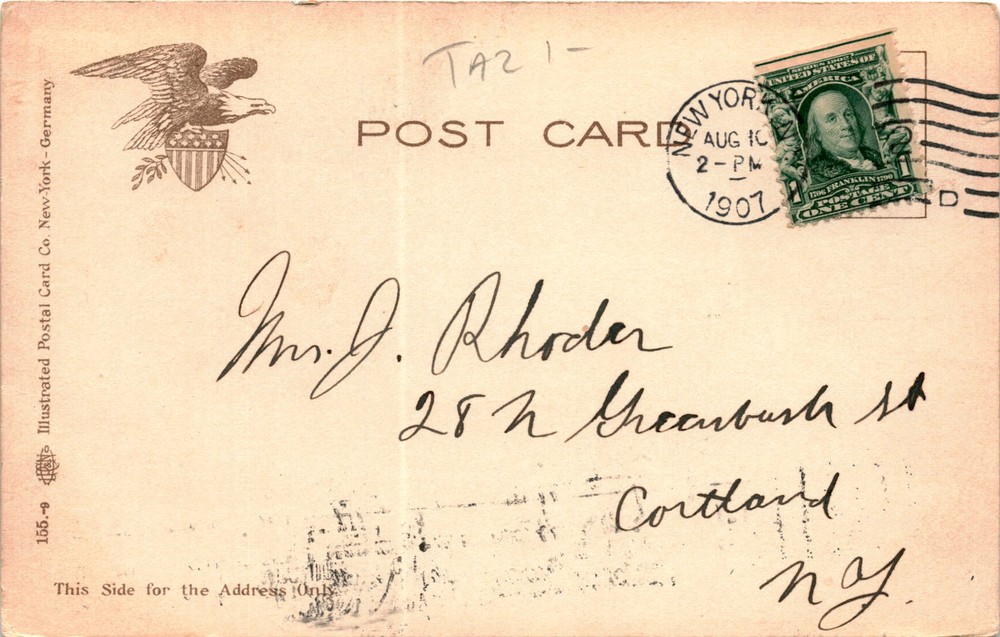 TAZ 1-
POST CARD
NEW YORK, N.Y.
AUG 10
2-PM
1907
D
SERIES 1902
UNITED STATES OF
AMERICA
1706 FRANKLIN 1790
1 POSTAGE 1
ONE CENT
Mrs. J. Rhoder
28 N Greenbush St
Cortland
N Y.
155.-9 Illustrated Postal Card Co. New-York - Germany
This Side for the Address Only